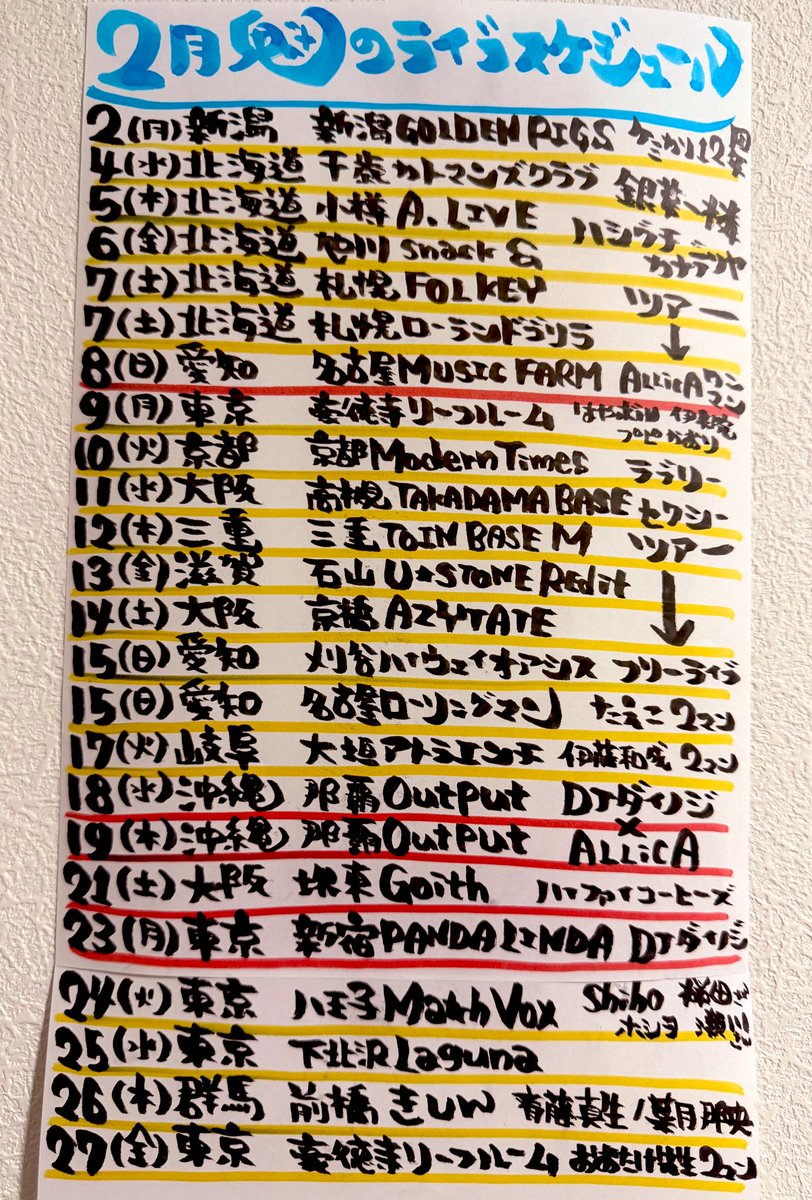 2月魁のライブスケジュール
2(月)新潟 新潟GOLDEN PIGS ケミカル12周年
4(水)北海道 千歳カトマンズクラブ 銀菱棒
5(木)北海道 小樽A.LIVE ハシグチ
6(金)北海道 旭川snack & カナデリヤ
7(土)北海道 札幌FOLKEY ツアー
7(土)北海道 札幌ローランドゴリラ ↓
8(日)愛知 名古屋MUSIC FARM ALLicAワンマン
9(月)東京 豪徳寺リーフルーム
10(火)京都 京都Modern Times ラブリー
11(水)大阪 高槻TAKADAMA BASE セクシー
12(木)三重 三重TOIN BASE M ツアー
13(金)滋賀 石山U★STONE Redit ↓
14(土)大阪 京橋AZYTATE
15(日)愛知 刈谷ハイウェイオアシス フリーライブ
15(日)愛知 名古屋ローリングマン たえこ2マン
17(火)岐阜 大垣アトラエンテ 伊藤和成2マン
18(水)沖縄 那覇Output DJダイノジ
×
19(木)沖縄 那覇Output ALLicA
21(土)大阪 堺東Goith ハイファイコーヒーズ
23(月)東京 新宿PANDA LINDA DJダイノジ
24(火)東京 八王子Match Vox Shiho
25(水)東京 下北沢Laguna
26(木)群馬 前橋きしゅん 斉藤真生/葉月那央
27(金)東京 豪徳寺リーフルーム おおたけ 2マン